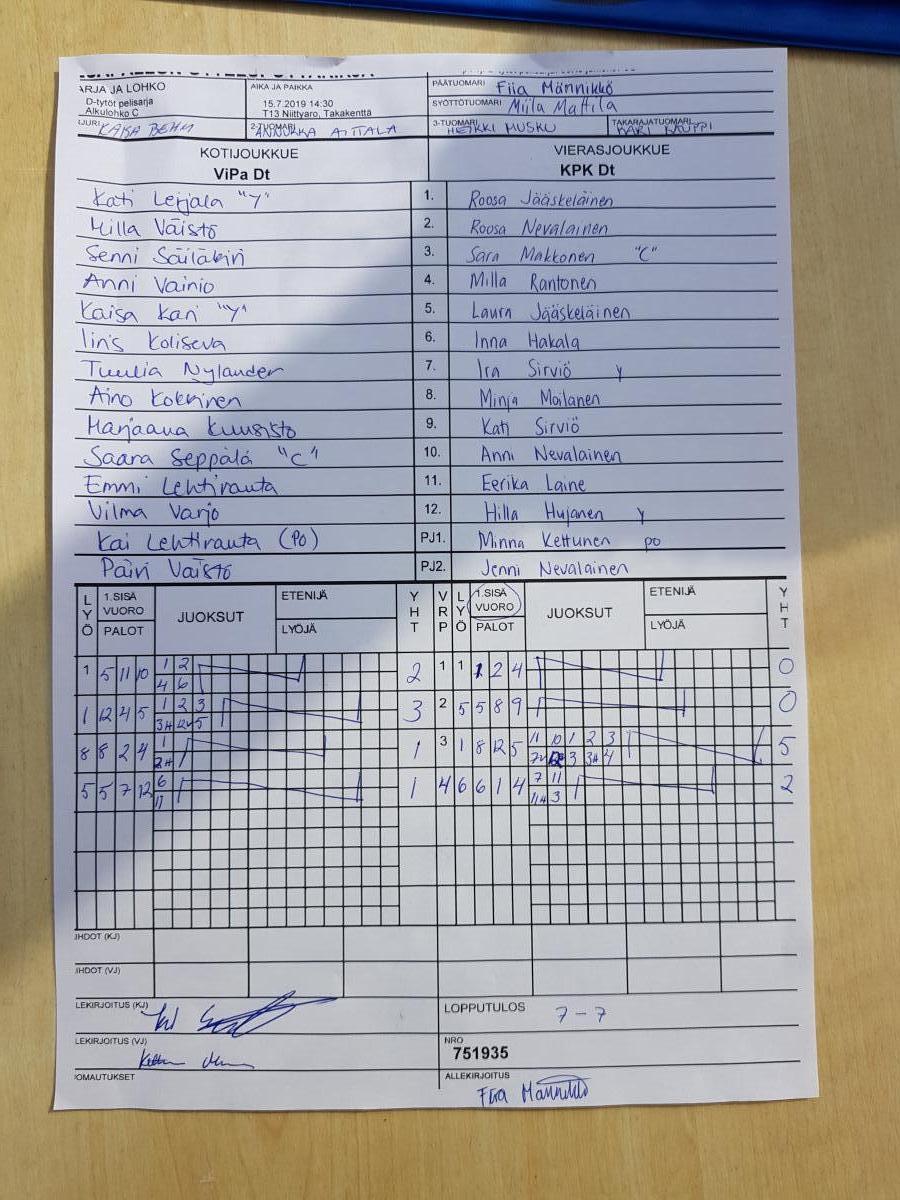 ARJA JA LOHKO AIKA JA PAIKKA PÄÄTUOMARI Fiia Männikkö
D-tytöt pelisarja
Alkulohko C 15.7.2019 14:30
T13 Niittyaro, Takakenttä SYÖTTÖTUOMARI Miila Mattila
KAISA BEHM 2-TUOMARI ANNUKKA AITTALA 3-TUOMARI HEIKKI MUSKU TAKARAJATUOMARI KARI KAUPPI
KOTIJOUKKUE VIERASJOUKKUE
ViPa Dt KPK Dt
Kati Lerjala "Y" 1. Roosa Jääskeläinen
Milla Väistö 2. Roosa Nevalainen
Senni 3. Sara Makkonen "C"
Anni Vainio 4. Milla Rantonen
Kaisa Kari "Y" 5. Laura Jääskeläinen
Iiris Koliseva 6. Inna Hakala
Tuulia Nylander 7. Ira Sirviö Y
Aino Kokkinen 8. Minja Moilanen
Marjaana Kuusisto 9. Kati Sirviö
Saara Seppälä "C" 10. Anni Nevalainen
Emmi Lehtirauta 11. Eerika Laine
Vilma Varjo 12. Hilla Hujanen Y
Kai Lehtirauta (PO) PJ1. Minna Kettunen po
Päivi Väistö PJ2. Jenni Nevalainen
LYÖ 1.SISÄ VUORO PALOT JUOKSUT ETENIJÄ LYÖJÄ YHT VRP LYÖ 1.SISÄ VUORO PALOT JUOKSUT ETENIJÄ LYÖJÄ YHT
1 5 11 10 1 2 2 1 1 1 2 4 0
4 6
1 12 4 5 1 2 3 3 2 5 5 8 9 0
3H 12V 5
8 8 2 4 1 1 3 1 8 12 5 11 10 1 2 3 5
2H 7V 3 3H 4
5 5 7 12 6 1 4 6 6 1 4 7 11 2
11 11H 3
HDOT (KJ)
HDOT (VJ)
LEKIRJOITUS (KJ) LOPPUTULOS 7-7
LEKIRJOITUS (VJ) NRO
751935
OMAUTUKSET ALLEKIRJOITUS
Fiia Männikkö